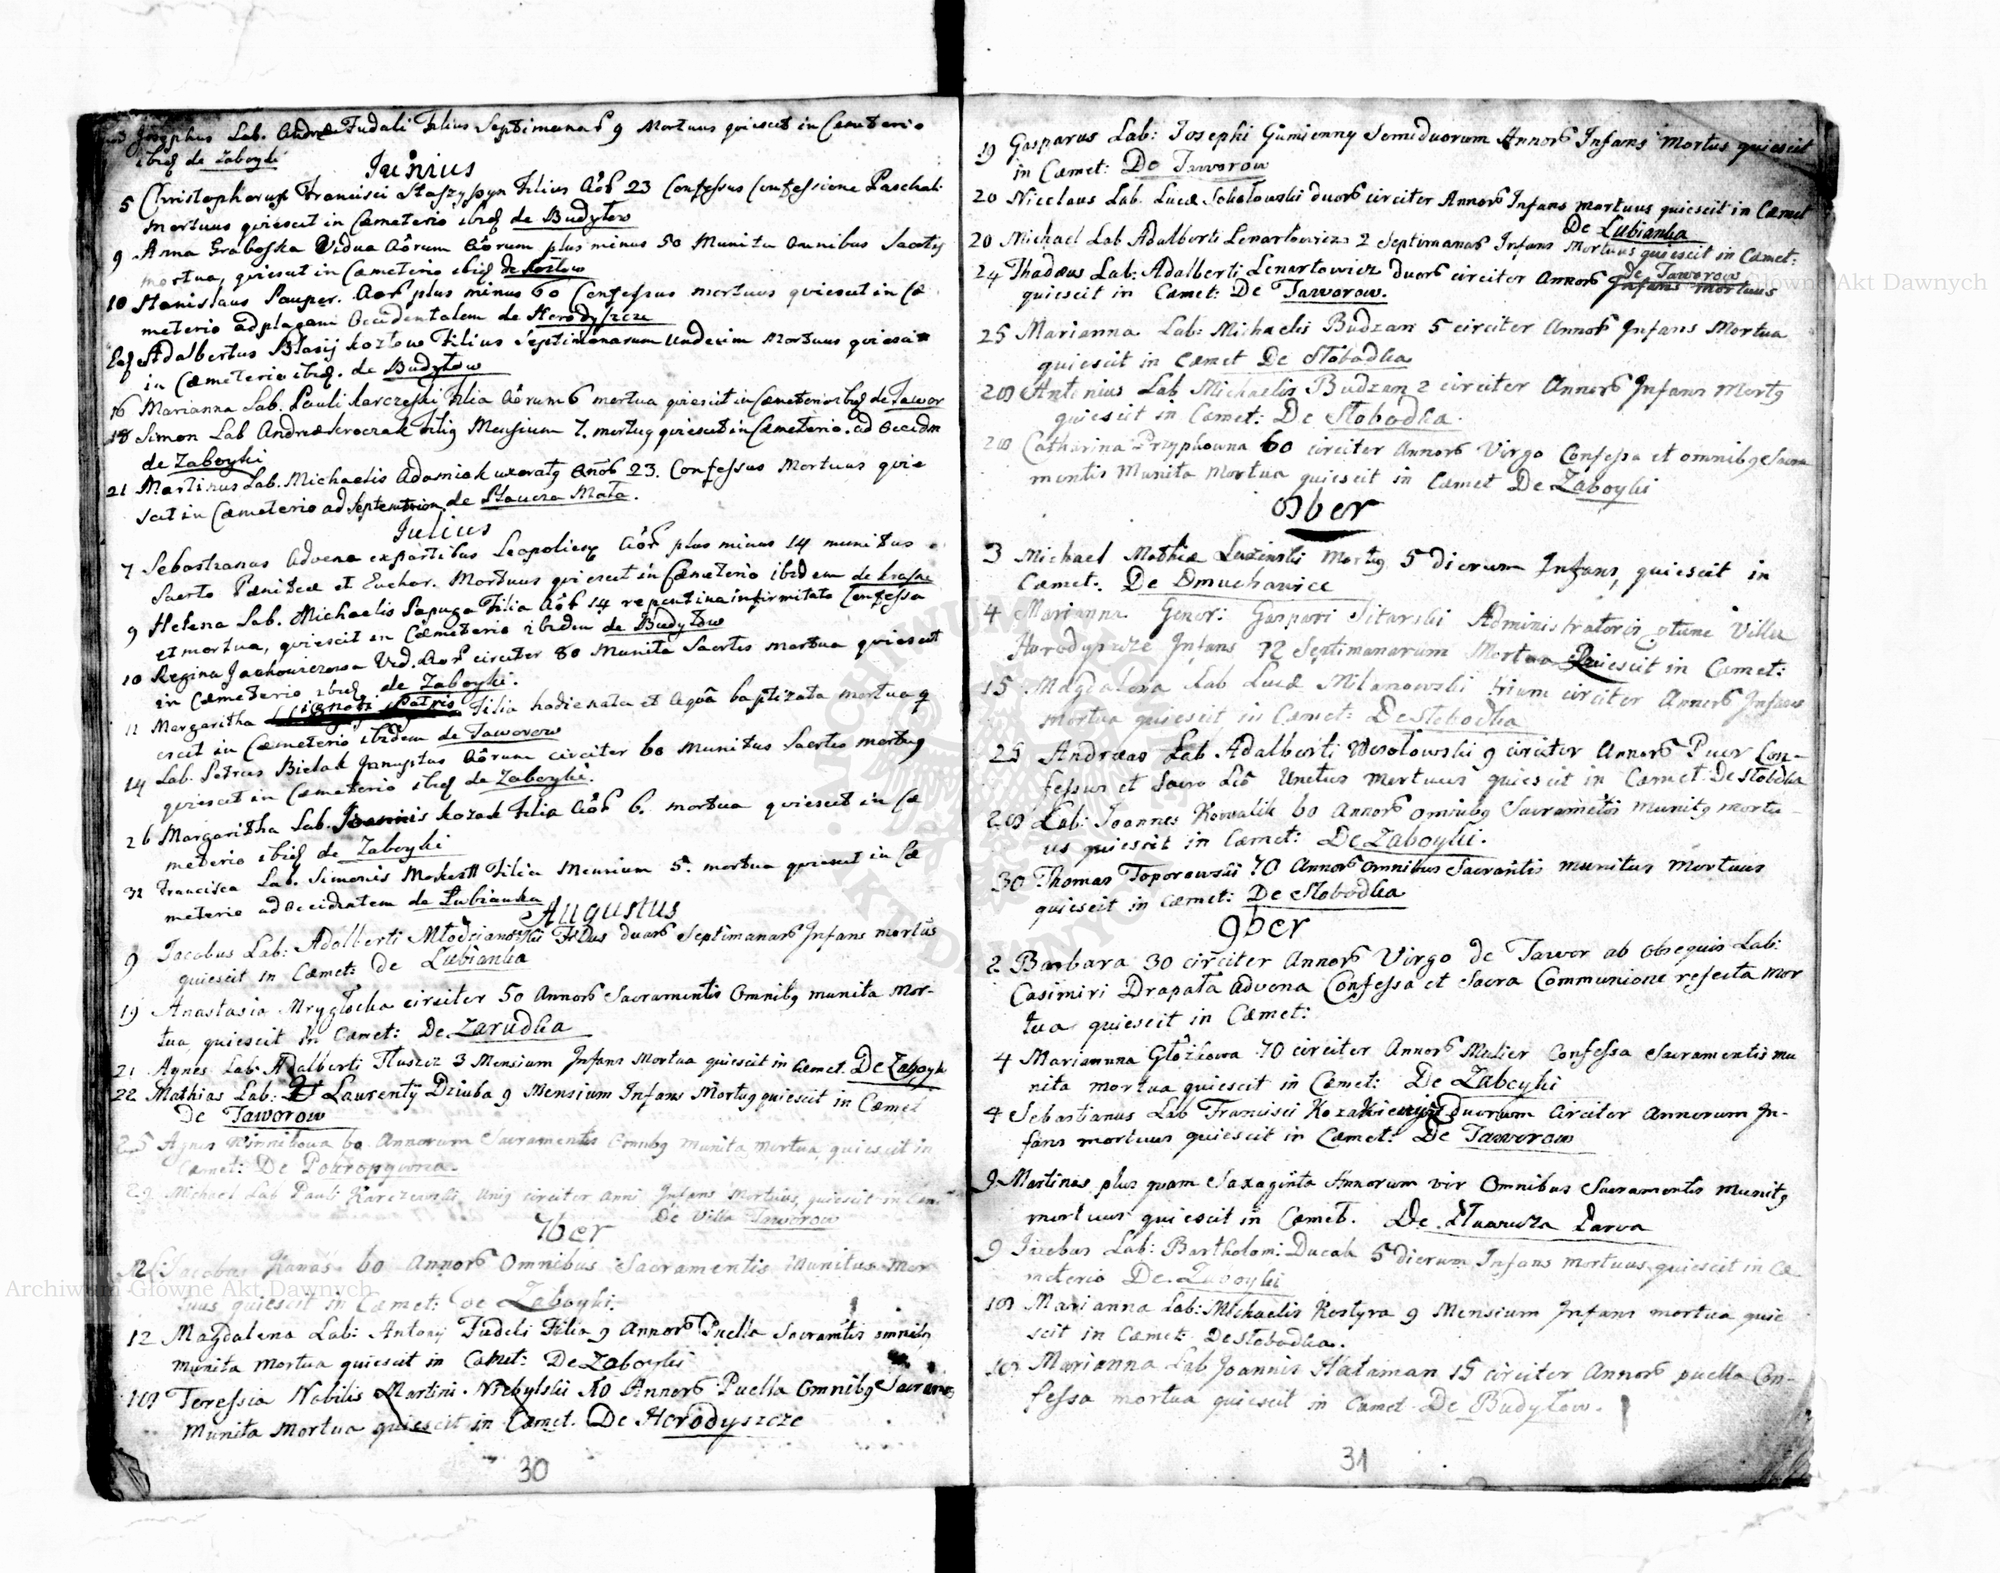 Josephus Lab. Andreæ Fudali Filius Septimana℞ 9 Mortuus quiescit in Cæmeterio
ibid de Zaboyki
Junius
5 Christophorus Francisci Filius Ao℞ 23 Confessus Confessione Paschali
mortuus quiescit in Cæmeterio ibid de Budyłow
9 Anna Graboska Vidua Aorum Aorum plus minus 50 Munita omnibus Sacris
mortua, quiescit in Cæmeterio ibid de Kozłow
10 Stanislaus Pauper. Ao℞ plus minus 60 Confessus mortuus quiescit in Cæ
meterio ad plagam Occidentalem de Horodyszcze
Eod Adalbertus Blasij Kozłow Filius Septimanarum Undecim Mortuus quiescit
in Cæmeterio ibid. de Budyłow
16 Marianna Lab. Pauli Karczeski Filia Aorum 6 mortua quiescit in Cæmeterio ibid de Tawor
18 Simon Lab Andreæ Filiq Mensium 7. mortuq quiescit in Cæmeterio. ad Occidn
de Zaboyki
21 Martinus Lab. Michaelis Adasniak uxoratq Ano℞ 23. Confessus Mortuus quie
scit in Cæmeterio ad Septemtrion de Stawcza Mała.
Julius
7 Sebastianus Advena ex partibus Leopoliens Ao℞ plus minus 14 munitus
Sacrto Pænitæ et Euchar. Mortuus quiescit in Cæmeterio ibidem de Krasne
9 Helena Lab. Michaelis Papuga Filia Ao℞ 14 repentina infirmitate Confessa
et mortua, quiescit in Cæmeterio ibidem de Budyłow
10 Regina Jachowiczowa Vid. Ao℞ circiter 80 Munita Sacrtis mortua quiescit
in Cæmeterio ibid de Zaboyki.
11 Margaritha ignoti Patris Filia hodie nata et Aquâ baptizata mortua q
escit in Cæmeterio ibidem de Taworow
14 Lab. Petrus Bielak Innuptus Aôrum circiter 60 Munitus Sacrtis mortuq
quiescit in Cæmeterio ibid de Zaboyki.
26 Margaritha Lab. Joannis Kozak Filia Ao℞ 6. mortua quiescit in Cæ
meterio ibid de Zaboyki
31 Francisca Lab. Simonis Filia Mensium 5. mortua quiescit in Cæ
meterio ad Occidentem de Łubianka
Augustus
9 Jacobus Lab: Adalberti Filius duar℞ Septimanar℞ Infans mortus
quiescit in Cæmet: de Łubianka
19 Anastasia Mrygłocka circiter 50 Annor℞ Sacramentis Omnibq munita Mor-
tua quiescit in Cæmet: De Zarudka
21 Agnes Lab: Adalberti Tłuszcz 3 Mensium Infans Mortua quiescit in Cæmet. De Zaboyk
22 Mathias Lab: Laurenty Dziuba 9 Mensium Infans Mortuq quiescit in Cæmet
De Taworow
25 Agnes 60 Annorum Sacramentis Omnibq Munita mortua, quiescit in
Cæmet: De Pokropywna.
29 Michael Lab Pauli Karczewski Uniq circiter anni Infans Mortuus, quiescit in Cæm:
De Villa Taworow
7ber
12 Jacobus 60 Annor℞ Omnibus Sacramentis Munitus Mor
tuus quiescit in Cæmet: de Zaboyki.
12 Magdalena Lab: Antonij Fudeli Filia 9 Annor℞ Puella Sacramtis omnibq
munita mortua quiescit in Cæmet: De Zaboyki
Teressia Nobilis Martini 10 Annor℞ Puella Omnibq Sacrame
Munita Mortua quiescit in Cæmet. De Horodyszcze
30
19 Gasparus Lab: Josephi Gumienny Semiduorum Annor℞ Infans Mortus quiescit
in Cæmet: De Taworow
20 Nicolaus Lab. Lucæ Sokołowski duor℞ circiter Annor℞ Infans mortuus quiescit in Cæmet
De Łubianka
20 Michael Lab Adalberti Lenartowicz 2 Septimanar℞ Infans Mortuus quiescit in Cæmet:
De Taworow
24 Thadæus Lab: Adalberti Lenartowicz duor℞ circiter Annor℞ Infans mortuus
quiescit in Cæmet: De Taworow.
25 Marianna Lab: Michaelis Budzan 5 circiter Annor℞ Infans Mortua
quiescit in Cæmet De Słobodka
Antonius Lab Michaelis Budzan 2 circiter Annor℞ Infans Mortq
quiescit in Cæmet: De Słobodka.
Catharina 60 circiter Annor℞ Virgo Confessa et omnibq Sacra
mentis Munita Mortua quiescit in Cæmet De Zaboyki
8ber
3 Michael Mathiæ Luzinski Mortuq 5 dierum Infans, quiescit in
Cæmet. De Dmuchawice
4 Marianna Gener: Gaspari Sitarski Administratoris Villa
Horodyszcze Infans 12 Septimanarum Mortua Quiescit in Cæmet:
15 Magdalena Lab Lucæ Milanowski trium circiter Annor℞ Infans
mortua quiescit in Cæmet: De Słobodka
25 Andræas Lab. Adalberti Wesołowski 9 circiter Annor℞ Puer Con-
fessus et Sacro Unctus mortuus quiescit in Cæmet: De Słobdka
Lab: Joannes Kowalik 60 Annor℞ Omnibq Sacrametis munitq mortu-
us quiescit in Cæmet: De Zaboyki.
30 Thomas Toporowski 70 Annor℞ Omnibus Sacramtis munitus mortuus
quiescit in Cæmet: De Słobodka
9ber
2 Barbara 30 circiter Annor℞ Virgo de Tawor ab Obsequis Lab:
Casimiri Drapała Advena Confessa et Sacra Communione refecta Mor
tua quiescit in Cæmet:
4 Marianna 70 circiter Annor℞ Mulier Confessa Sacramentis mu
nita mortua quiescit in Cæmet: De Zaboyki
4 Sebastianus Lab Francisci duorum circiter Annorum In-
fans mortuus quiescit in Cæmet: De Taworow
9 Martinus plus quam Saxaginta Annorum vir Omnibus Sacramentis Munitq
mortuus quiescit in Cæmet. De Parva
9 Lab: Bartholomi Ducak 5 dierum Infans mortuus quiescit in Cæ
meterio De Zaboyki
Marianna Lab: Michaelis Kostyra 9 Mensium Infans mortua quie
scit in Cæmet: De Słobodka.
Marianna Lab Joannis Hałaman 15 circiter Annor℞ puella Con-
fessa mortua quiescit in Cæmet De Budyłow.
31
Archiwum Główne Akt Dawnych